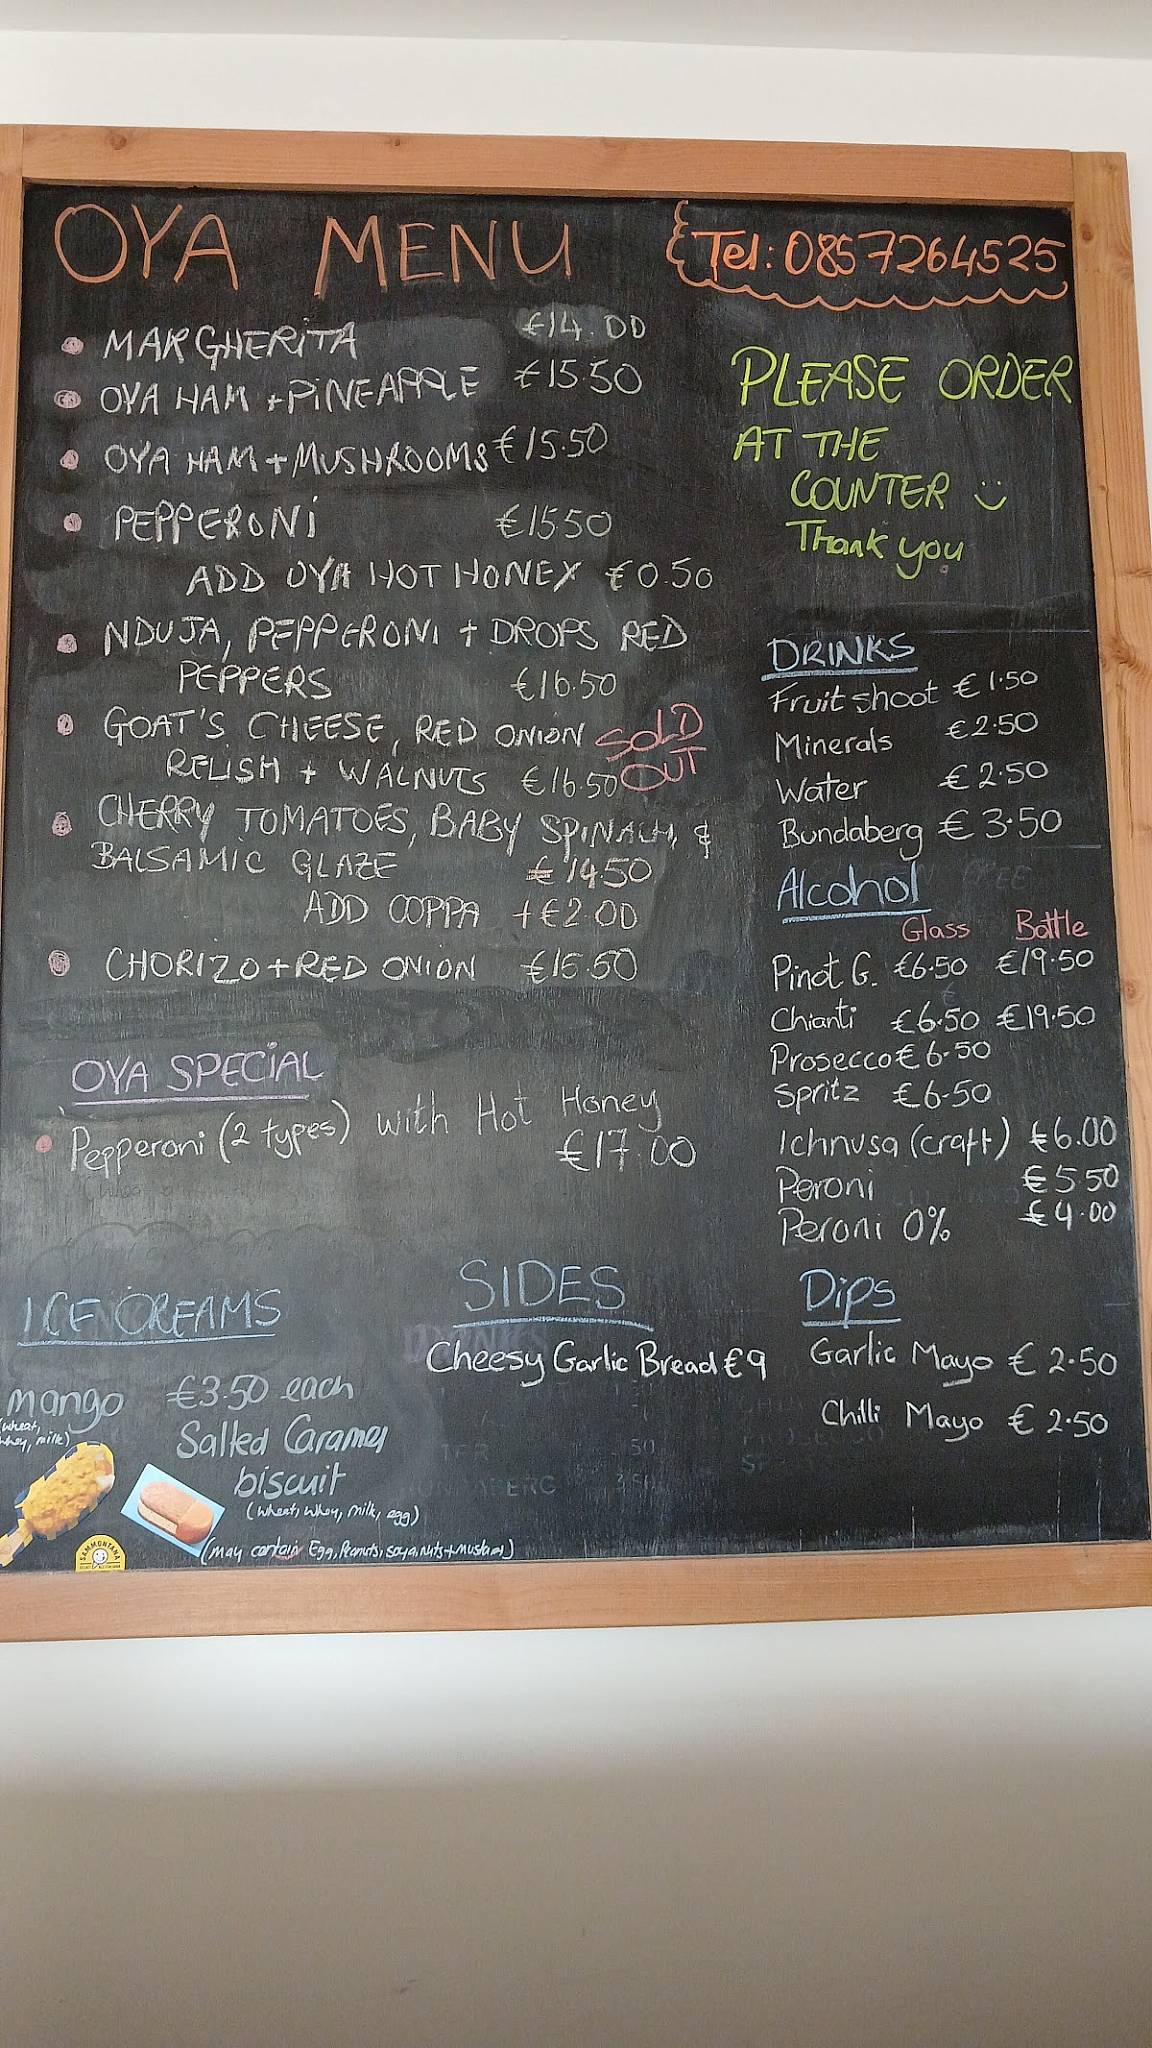 OYA MENU
Tel: 0857264525
MARGHERITA €14.00
OYA HAM + PINEAPPLE €15.50
OYA HAM + MUSHROOMS €15.50
PEPPERONI €15.50
ADD OYA HOT HONEY €0.50
NDUJA, PEPPERONI + DROPS RED
PEPPERS €16.50
GOAT'S CHEESE, RED ONION
RELISH + WALNUTS €16.50
SOLD
OUT
CHERRY TOMATOES, BABY SPINACH, &
BALSAMIC GLAZE €14.50
ADD COPPA +€2.00
CHORIZO + RED ONION €15.50
OYA SPECIAL
Pepperoni (2 types) with Hot Honey
€17.00
PLEASE ORDER
AT THE
COUNTER
Thank you
DRINKS
Fruit shoot €1.50
Minerals €2.50
Water €2.50
Bundaberg €3.50
Alcohol
Glass Bottle
Pinot G. €6.50 €19.50
Chianti €6.50 €19.50
Prosecco €6.50
Spritz €6.50
Ichnusa (craft) €6.00
Peroni €5.50
Peroni 0% €4.00
ICE CREAMS
mango €3.50 each
(wheat,
whey, milk)
Salted Caramel
biscuit
(wheat, whey, milk, egg)
SAMMONTANA
(may contain Egg, Peanuts, soya, nuts + mustard)
SIDES
Cheesy Garlic Bread €9
Dips
Garlic Mayo €2.50
Chilli Mayo €2.50